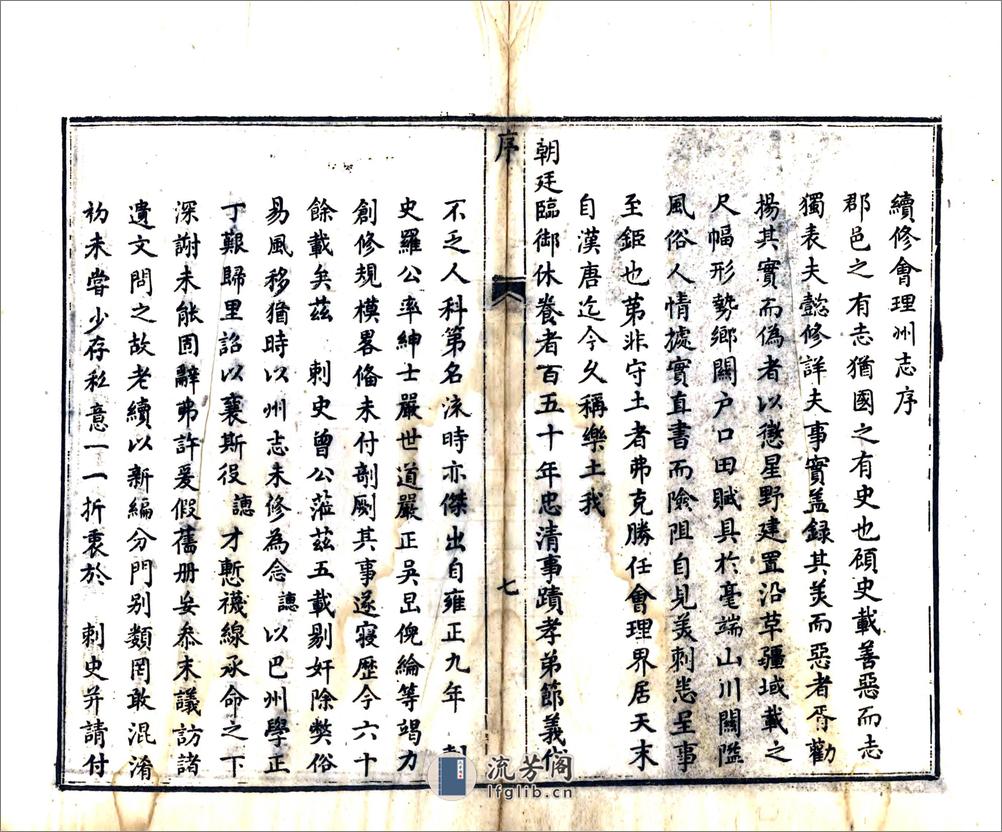 續修會理州志序
郡邑之有志猶國之有史也頋史載善惡而志
獨表夫懿修詳夫事實盖録其美而惡者胥勸
揚其實而偽者以懲星野建置沿革疆域載之
尺幅形勢鄉關户口田賦具於毫端山川關隘
風俗人情據實直書而險阻自見美刺悉呈事
至鉅也第非守土者弗克勝任會理界居天末
自漢唐迄今久稱樂土我
朝廷臨御休養者百五十年忠清事蹟孝弟節義代
序
七
不乏人科第名流時亦傑出自雍正九年 刺
史羅公率紳士嚴世道嚴正吳昆倪綸等竭力
創修規模畧偹未付剞劂其事遂寢歷今六十
餘載矣茲 刺史曾公蒞茲五載剔奸除弊俗
易風移猶時以州志未修為念 諰 以巴州學正
丁艱歸里詔以襄斯役 諰 才慚襪線承命之下
深謝未能固辭弗許爰假舊册妥叅末議訪諸
遺文問之故老續以新編分門别類罔敢混淆
初未嘗少存私意一一折衷於 刺史并請付
流芳阁
lfglib.cn